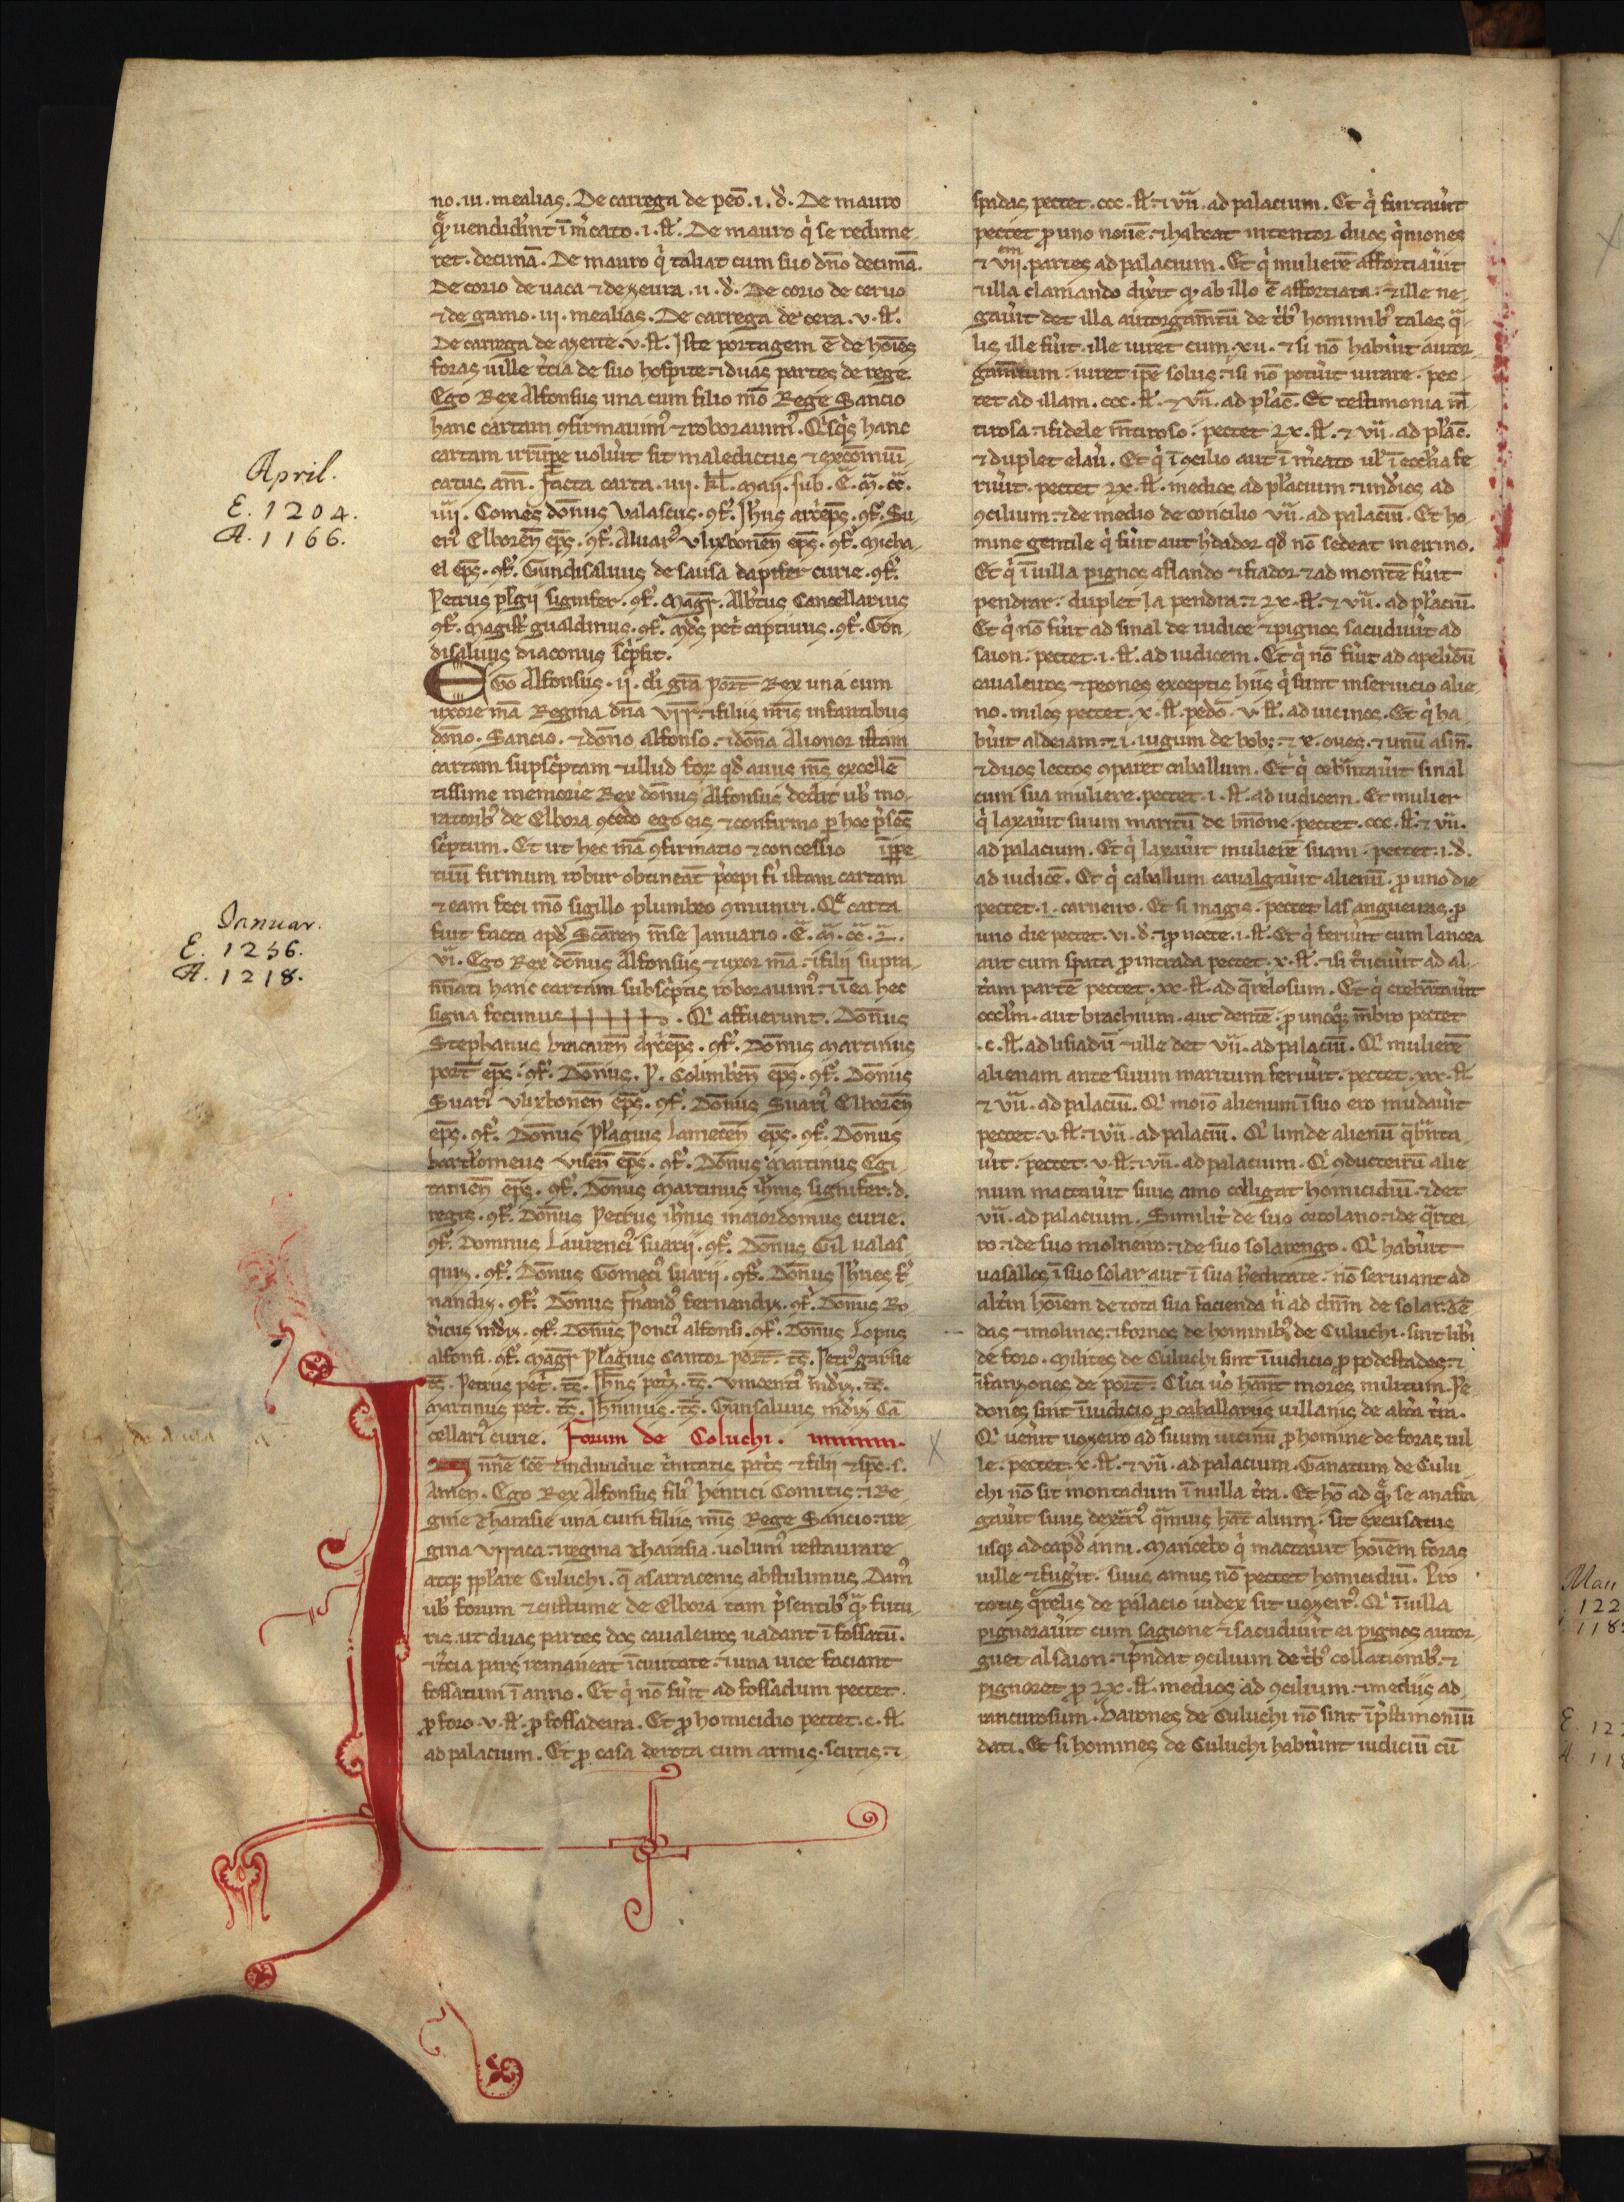 no. iii. mealias. De carrega de peō. i. đ. De mauro
q̄ uendidint ī mcato. i. ſł. De mauro q̇ se redime
ret. decimā. De mauro q̇ taliat cum suo dño decimā.
De corio de uaca ⁊ de zeura. ii. đ. De corio de ceruo
⁊ de gamo. iij. mealias. De carrega de cera. v. ſł.
De carrega de azeite. v. ſł. Iste portagem ē de hoīes
foras uille t̓cia de suo hospite ⁊ duas partes de rege.
Ego Rex Alfonsus una cum filio mō Rege Sancio
hanc cartam ꝯfirmauim⁹ ⁊ roborauim⁹. Q̇sq̇s hanc
cartam irrūpe uolu̓it sit maledictus ⁊ excomūi
catus am̄. facta carta. iiij. kł. maii. sub. E. m̄. cc.
iiij. Comes dōnus Valascus. ꝯf. Ioh̄s arc̄eps. ꝯf. Su
eri⁹ Elboreñ ep̄s. ꝯf. Aluar⁹ Vlixboneñ ep̄s. ꝯf. Micha
el ep̄s. ꝯf. Gundisaluus de sausa dapifer curie. ꝯf.
Petrus pelagii signifer. ꝯf. Magr̄. Alb̓tus Cancellarius
ꝯf. Magist̓ gualdinus. ꝯf. Mēds pet̓ captiuus. ꝯf. Gon
disaluus diaconus sc̓psit.
EGo Alfonsus. ii⁹. di̓ gr̄a port̄ Rex una cum
uxore mā Regina dn̄a Vrr̄ ⁊ filiis nr̄is infantibus
dōno. Sancio. ⁊ dōno alfonso. ⁊ dōna Alionor istam
cartam supsc̓ptam ⁊ illud for̄ qđ auus m̄s excellē
tissime memorie Rex dōnus Alfonsus dedit ub̓ mo
ratorib⁹ de Elbora ꝯcedo ego eis ⁊ confirmo ꝑ hoc p̓sēs
sc̓ptum. Et ut hec mā ꝯfirmatio ⁊ concessio īppe
tuū firmum robur obtineāt p̓cepi fi̓ istam cartam
⁊ eam feci mō sigillo plumbeo ꝯmuniri. Qͤ carta
fuit facta apđ Scāren m̄se Ianuario. E. m̄. cc. L.
vi. Ego Rex dōnus Alfonsus ⁊ uxor mā ⁊ filij supra
n̄mati hanc cartam subsc̓ptis roborauim⁹ ⁊ ī ea hec
signa fecimus ++++++. Q̇ affuerunt. Dōnus
Stephanus bracareñ Arc̄eps. ꝯf. Dōnus Martinus
port̄ ep̄s. ꝯf. Dōnus. P. Colimb̓eñ ep̄s. ꝯf. Dōnus
Suari⁹ Vlixboneñ ep̄s. ꝯf. Dōnus Suari⁹ Elboreñ
ep̄s. ꝯf. Dōnus Pelagius Lameceñ ep̄s. ꝯf. Dōnus
bartholomeus Viseñ ep̄s. ꝯf. Dōnus Martinus Egi
taneñ ep̄s. ꝯf. Dōnus Martinus ioh̄nis signifer. d.
regis. ꝯf. Dōnus Petrus ioh̄nis maiordomus curie.
ꝯf. Domnus Laurenci⁹ suarij. ꝯf. Dōnus Gil ualas
quiz. ꝯf. Dōnus Gomeci⁹ suarii. ꝯf. Dōnus Ioh̄nes f̓
nandiz. ꝯf. Dōnus f̓nand⁹ fernandiz. ꝯf. Dōnus Ro
d̓icus mēdiz. ꝯf. Dōnus Ponci⁹ alfonsi. ꝯf. Dōnus Lopus
alfonsi. ꝯf. Magr̄ Pelagius Cantor port̄. ts̄. Petr⁹ garsie
ts̄. Petrus pet̓. ts̄. Ioh̄ns pet̓z. ts̄. Vincenti⁹ mēdiz. ts̄.
Martinus pet̓. ts̄. Ioh̄ninus. ts̄. Gunsaluus mēdiz Cā
cellari⁹ curie. Forum de Coluchi.
In nōīe sc̄e ⁊ indiuidue t̓nitatis pat̓s ⁊ filij ⁊ sp̄c. s.
Amen. Ego Rex Alfonsus fili⁹ henrici Comitis ⁊ Re
gine Tharasie una cum filiis m̄is Rege Sancio ⁊ re
gina Vrraca ⁊ regina Tharasia. uolum⁹ restaurare
atq; ppl̄are Culuchi. q̄ a sarracenis abstulimus. Dam⁹
ub̓ forum ⁊ custume de Elbora tam p̓sentib⁹ q̄ futu
ris. ut duas partes dos caualeiros uadant ī fossatū.
⁊ t̓cia pars remaneat ī ciuitate. ⁊ una uice faciant
fossatum ī anno. Et q̇ nō fu̓it ad fossadum pectet
ꝓ foro. v. ſł. ꝓ fossadeira. Et ꝓ homicidio pectet. c. ſł.
ad palacium. Et ꝓ casa derota cum armis. scutis. ⁊
spadas pectet. ccc. ſł. ⁊ viī. ad palacium. Et q̇ furtau̓it
pectet ꝓ uno nouē. ⁊ habeat intentor duos q̇niones
⁊ vii. partes ad palacium. Et q̇ mulierē affortiau̓it
⁊ illa clamando dix̓it q ab illo ē affortiata. ⁊ ille ne
gau̓it det illa autorgam̄tū de t̓b⁹ hominib⁹ tales q̄
lis ille fu̓it. ille iuret cum. xii. ⁊ si nō habu̓it autor
gam̄tum. iuret ip̄e solus. ⁊ si nō potu̓it iurare. pec
tet ad illam. ccc. ſł. ⁊ viī. ad pl̄ac̄. Et testimonia m̄
tirosa ⁊ fidele m̄tiroso. pectet lx. ſł. ⁊ viī. ad pl̄ac̄.
⁊ duplet elau̓. Et q̇ ī ꝯcilio aut ī mcato ul̓ ī eccl̓ia fe
riu̓it. pectet lx. ſł. medios ad pl̄acium ⁊ medios ad
ꝯcilium. ⁊ de medio de concilio viī. ad palaciū. Et ho
mine gentile q̇ fu̓it aut h̓dador qđ nō sedeat meirino.
Et q̇ ī uilla pignos aflando ⁊ fiador ⁊ ad montē fu̓it
pendrar. duplet la pendra. ⁊ lx. ſł. ⁊ viī. ad pl̄aciū.
Et q̇ nō fu̓it ad sinal de iudice ⁊ pignos sacudiu̓it ad
saion. pectet. i. ſł. ad iudicem. Et q̇ nō fu̓it ad apelidū
caualeiros ⁊ peones exceptis hiis q̇ sunt inseruicio alie
no. miles pectet. x. ſł. pedō. v. ſł. ad uicinos. Et q̇ ha
bu̓it aldeiam. ⁊ i. iugum de bob;. ⁊ x. oues. ⁊ unū asin̄.
⁊ duos lectos ꝯparet caballum. Et q̇ cēb̓ntau̓it sinal
cum sua muliere. pectet. i. ſł. ad iudicem. Et mulier
q̇ laxau̓it suum maritū de bn̄ōne. pectet. ccc. ſł. ⁊ viī.
ad palacium. Et q̇ laxau̓it mulierē suam. pectet. i. đ.
ad iudicē. Et q̇ caballum caualgau̓it alienū. ꝓ uno die
pectet. i. carneiro. Et si magis. pectet las angueiras. ꝓ
uno die pectet. vi. đ. ⁊ ꝓ nocte. i. ſł. Et q̇ feriu̓it cum lancea
aut cum spata ꝓ intrada pectet. x. ſł. ⁊ si t̄nciu̓it ad al
t̓am partē pectet. xx. ſł. ad q̄relosum. Et q̇ crebātau̓it
occłm. aut brachium. aut dentē. ꝓ unoq̄q; m̄bro pectet
.c. ſł. ad lisiadū ⁊ ille det viī. ad palaciū. Q̇ mulierē
alienam ante suum maritum feriu̓it. pectet. xxx. ſł
⁊ viī. ad palaciū. Q̇ moiō alienum ī suo ero mudau̓it
pectet. v. ſł. ⁊ viī. ad palaciū. Q̇ linde alienū q̄b̄nta
u̓it. pectet. v. ſł. ⁊ viī. ad palacium. Q̇ ꝯducteirū alie
num mactau̓it suus amo colligat homicidiū. ⁊ det
viī. ad palacium. Similit̓ de suo ortolano. ⁊ de q̄rtei
ro. ⁊ de suo molneiro. ⁊ de suo solarengo. Q̇ habu̓it
uasallos ī suo solar aut ī sua h̓editate. nō seruiant ad
alt̓m hoīem de tota sua facienda n̓ ad dn̄m de solar. tē
das ⁊ molinos. ⁊ fornos de hominib⁹ de Culuchi. sint lib̓i
de foro. Milites de Culuchi sint ī iudicio ꝓ podestades. ⁊
īfanzones de port̄. Cl̓ici u̓o hāānt mores militum. Pe
dones sint ī iudicio ꝓ caballarus uillanis de alt̓a t̓ra.
Q̇ uen̓it uozeiro ad suum uicinū ꝓ homine de foras uil
le. pectet. x. ſł. ⁊ viī. ad palacium. Ganatum de Culu
chi nō sit montadum ī nulla t̓ra. Et hō ad q̄ se anafra
gau̓it suus dextari⁹ q̄muis hāt alium. sit excusatus
usq; ad capđ anni. Mancebo q̇ mactau̓it hoīem foras
uille ⁊ fug̓it. suus amus nō pectet homicidiū. Pro
totis q̄relis de palacio iudex sit uozeir⁹. Q̇ ī uilla
pignorau̓it cum sagione ⁊ sacudiu̓it ei pignos autor
guet al saion. ⁊ p̓ndat ꝯcilium de t̓b⁹ collationib⁹. ⁊
pignoret ꝓ lx. ſł. medios ad ꝯcilium. ⁊ mediis ad
rancurosum. Barones de Culuchi nō sint ī p̓stimoniū
dati. Et si homines de Culuchi habu̓int iudiciū cū
April.
E. 1204.
A. 1166.
Januar.
E. 1256.
A. 1218.